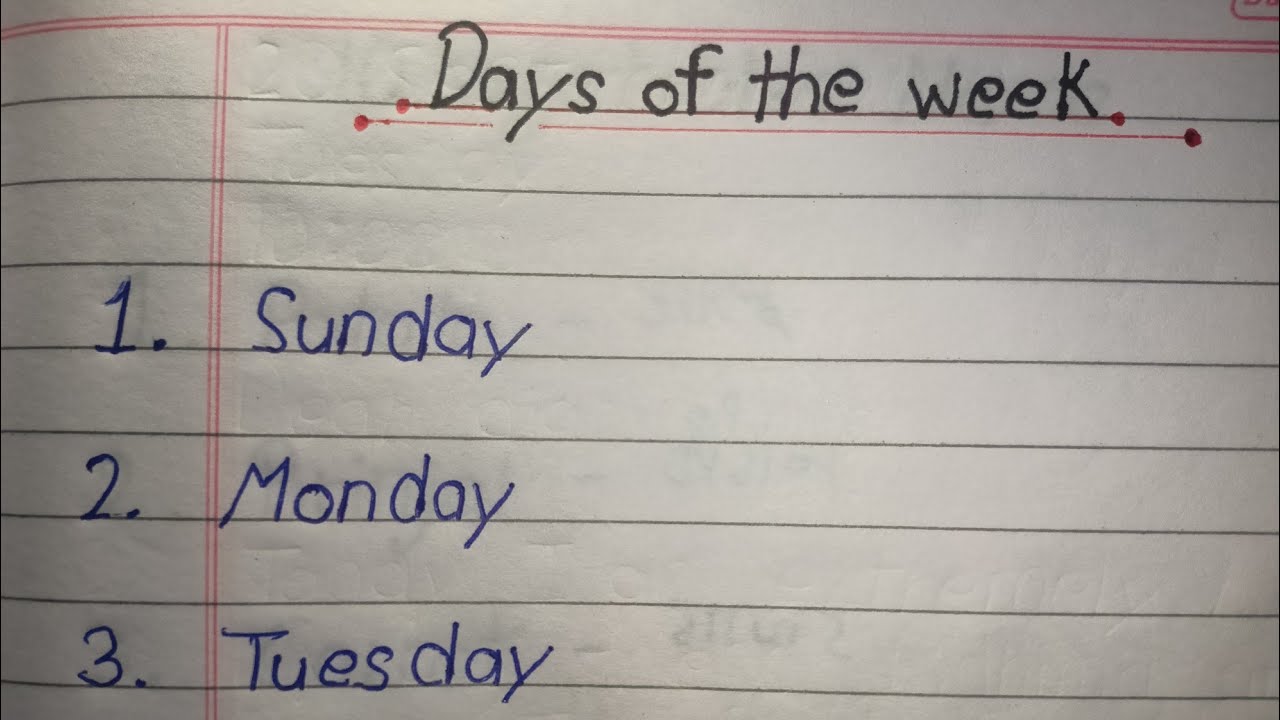 Days of the week.
1. Sunday
2. Monday
3. Tuesday